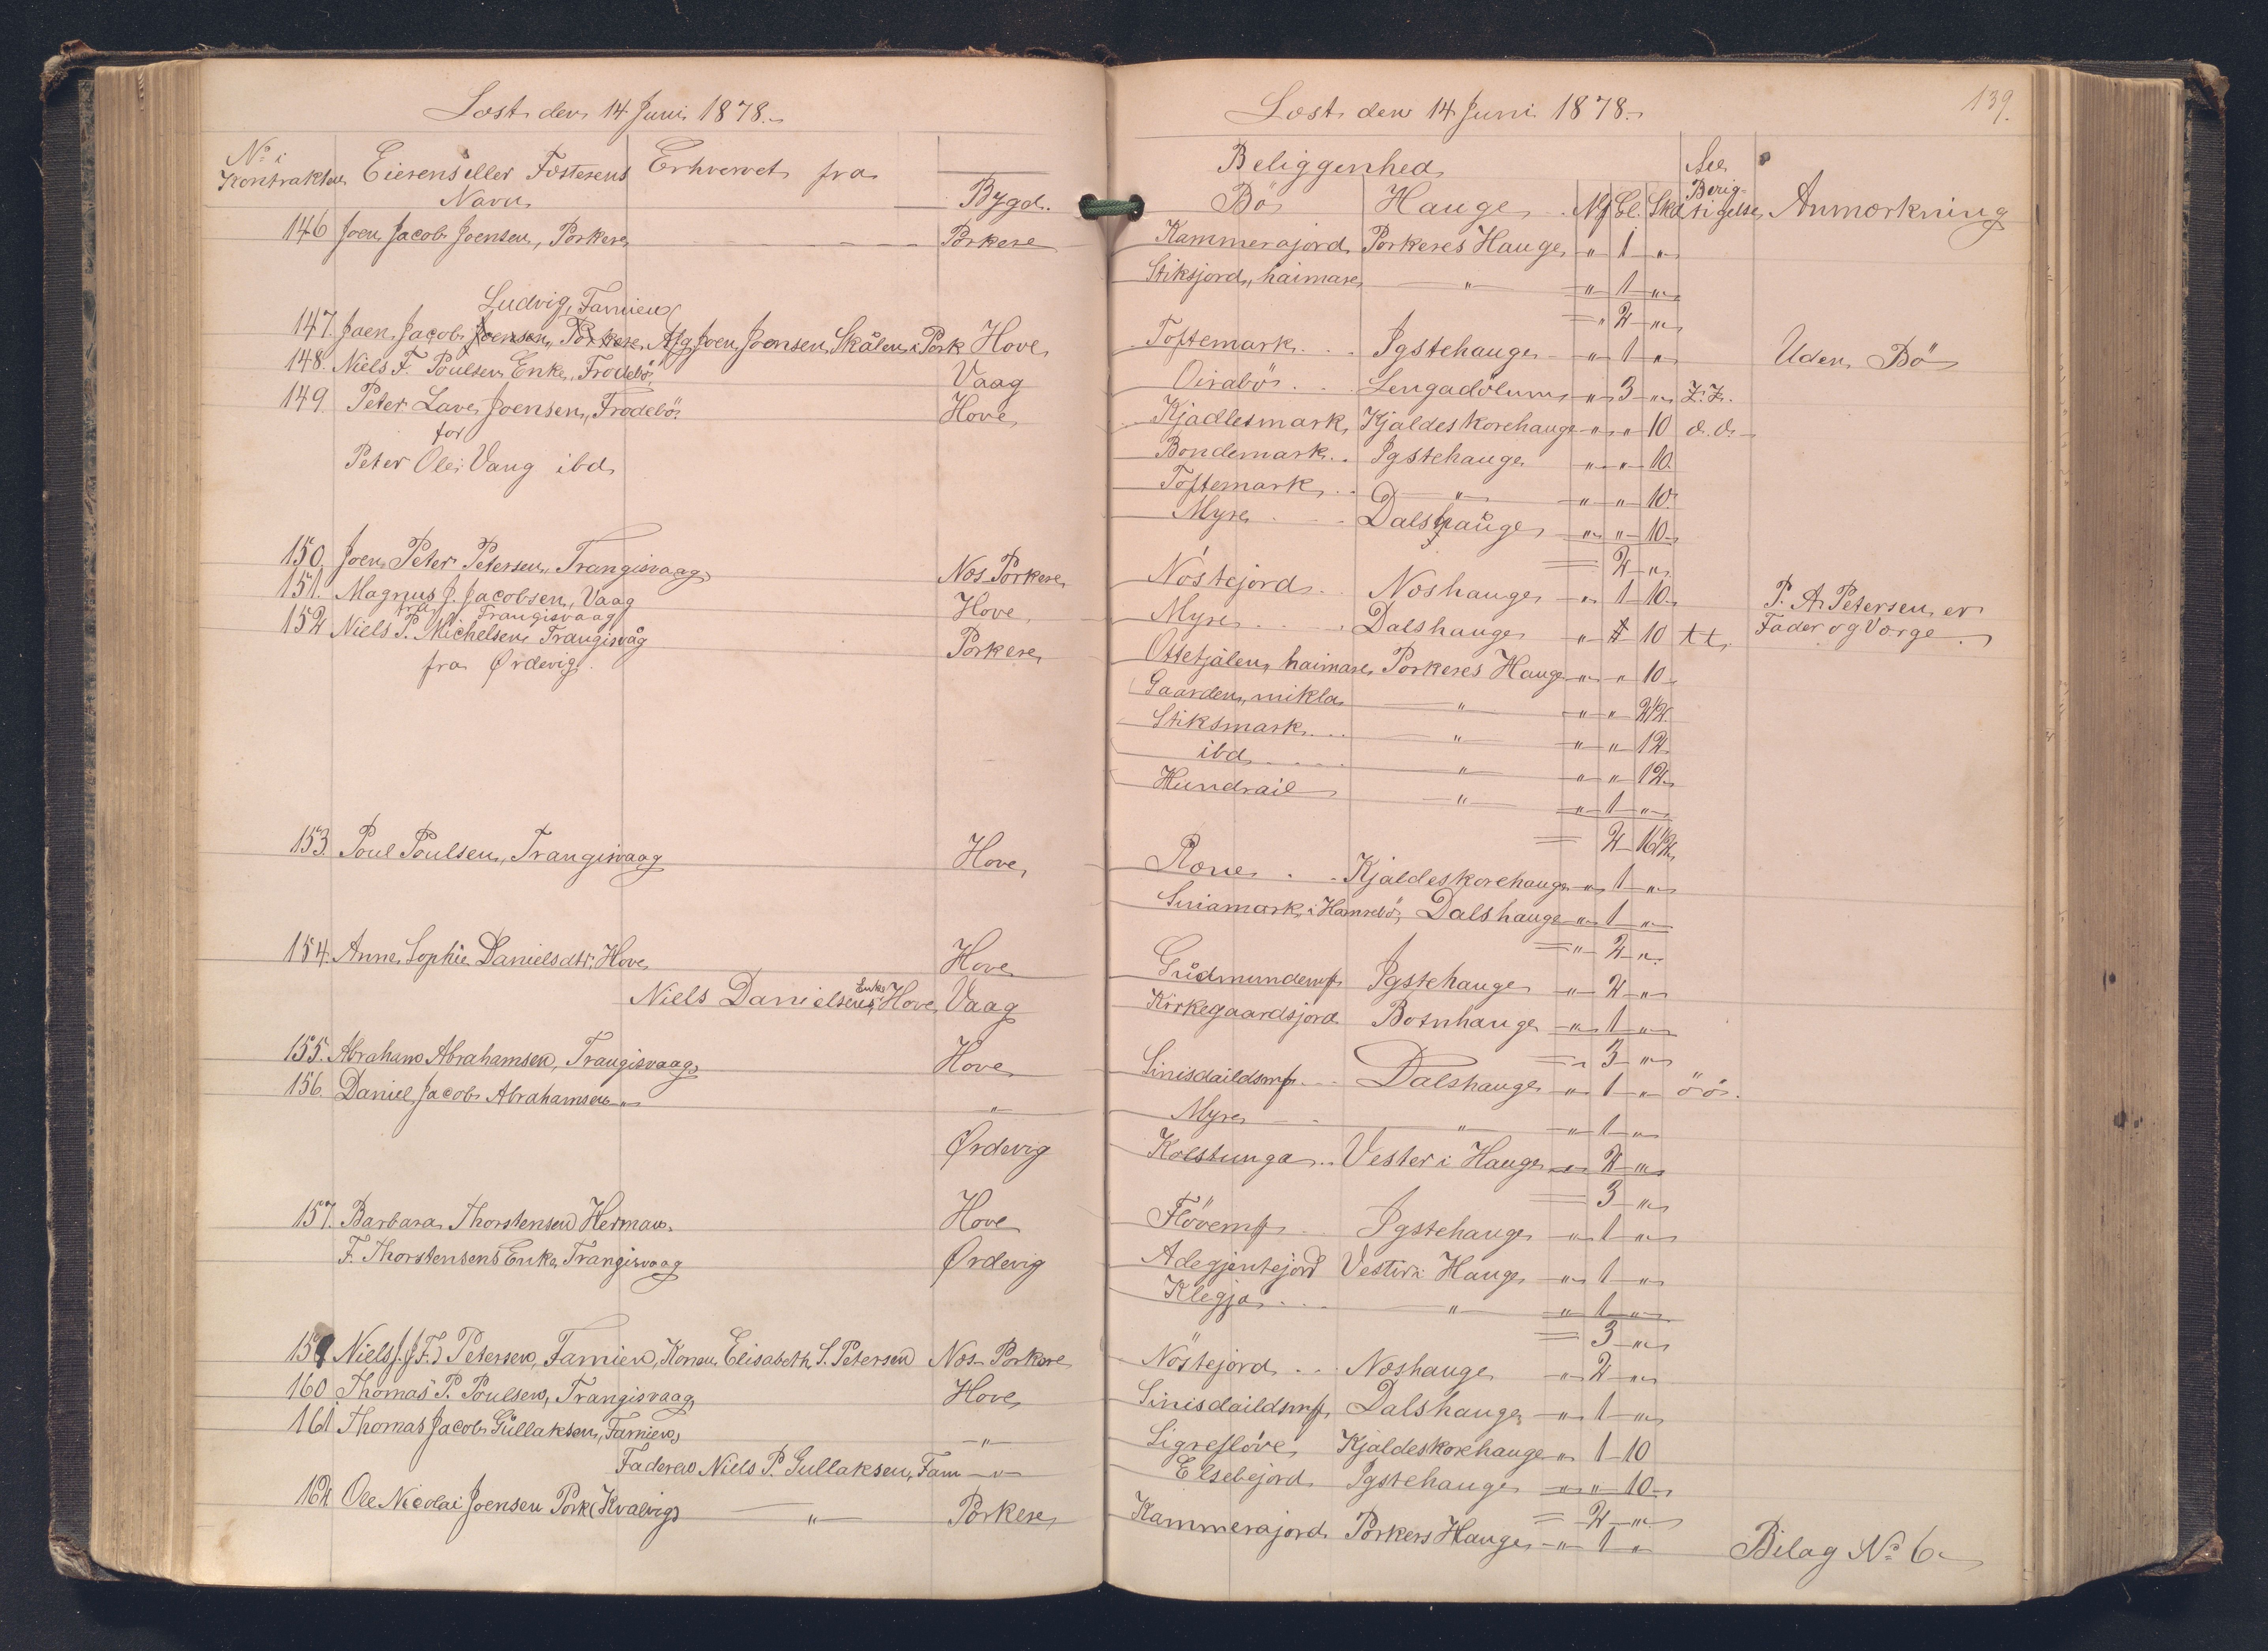 Læst den 14 Juni 1878.
No i Kontrakten Eierens eller Fæsterens Navn Erhvervet fra Bygd.
146 Joen Jacob Joensen, Porkere Porkere
Ludvig, Famien
147. Joen Jacob Joensen, Porkere Afg Joen Joensen Skålen i Pork Hove
148. Niels F. Poulsens Enke, Frodebö Vaag
149. Peter Lave Joensen, Frodebö Hove
for
Peter Ole Vang ibd
150. Joen Peter Petersen, Trangisvaag Nes Porkere
151. Magnus J. Jacobsen, Vaag Hove
fra Trangisvaag
152 Niels P. Michelsen Trangisvåg Porkere
fra Ørdevig.
153. Poul Poulsen, Trangisvaag Hove
154. Anne Sophie Danielsdtr. Hove Hove
Niels Danielsens Enke Hove Vaag
155. Abraham Abrahamsen, Trangisvaag Hove
156. Daniel Jacob Abrahamsen " "
Ørdevig
157. Barbara Thorstensen Herman Hove
F. Thorstensens Enke, Trangisvaag Ørdevig
159 Niels J. (J. F.) Petersen, Famien, Konen Elisabeth S. Petersen Nes Porkere
160. Thomas P. Poulsen, Trangisvaag Hove
161. Thomas Jacob Gullaksen, Famien "
Faderen Niels P. Gullaksen, Fam "
162 Ole Nicolai Joensen Pork (Kvalvig) " Porkere
139.
Læst den 14 Juni 1878.
Beliggenhed See
Bö Hauge Mf Gl. Skd Berigtigelse Anmærkning
Kammerajord Porkeres Hauge " 1 "
Stiksjord, haimare " " 1 "
= " 2 "
Toftemark Igstehauge " 1 " Uden Bö
Oirabö Lengadölum " 3 " Z.Z.
Kjadlesmark Kjaldeskorehauge " " 10 d.d.
Bondemark Igstehauge " " 10
Toftemark " " " 10
Myre Dalshauge " " 10
= 2 "
Nöstejord Neshauge " 1 10 P. A. Petersen er
Myre Dalshauge " 10 tt. Fader og Værge.
Ottetjålen, haimare Porkeres Hauge " " 10
Gaarden, mikla " " " 2 1/2
Stiksmark " " " 12
ibd " " " 12
Hundrail " " 1 "
= 2 16 1/2
Rone Kjaldeskorehauge " 1 "
Suiamark i Hamrebö, Dalshauge " 1 "
= " 2 "
Gudmundemf Igstehauge " 2 "
Kirkegaardsjord Botnhauge " 1 "
= " 3 "
Sinisdaildsmf Dalshauge " 1 " öö.
Myre " " 1 "
Kolstunga Vester i Hauge " 2 "
= 3 "
Flövemf Igstehauge " 1 "
Adegjentejord Vester i Hauge " 1 "
Klegja " " 1 "
= 3 "
Nöstejord Neshauge " 2 "
Sinisdaildsmf Dalshauge " 1 "
Sigreflöve Kjaldeskorehauge " 1 10
Elsebejord Igstehauge " " 10
= 2 "
Kammerajord Porkers Hauge " 1 " Bilag No 6